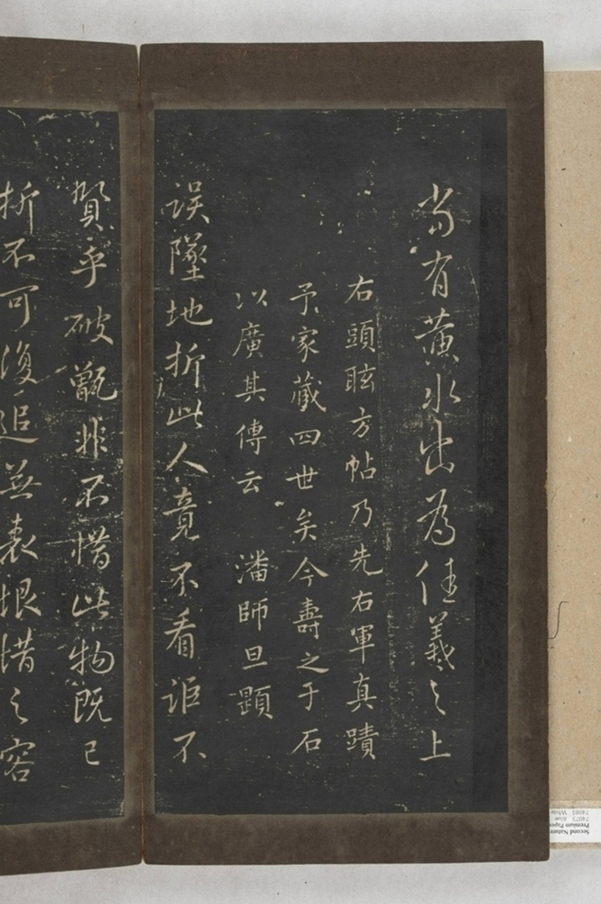 當有黃水出為佳羲之上
右頭眩方帖乃先右軍真蹟
予家藏四世矣今壽之于石
以廣其傳云 潘師旦題
误墜地折此人竟不看詎不
賢乎破甑非不惜此物既已
折不可復追無表恨惜之容
Second Nature
Premium Paper
74075 Blue
74085 White